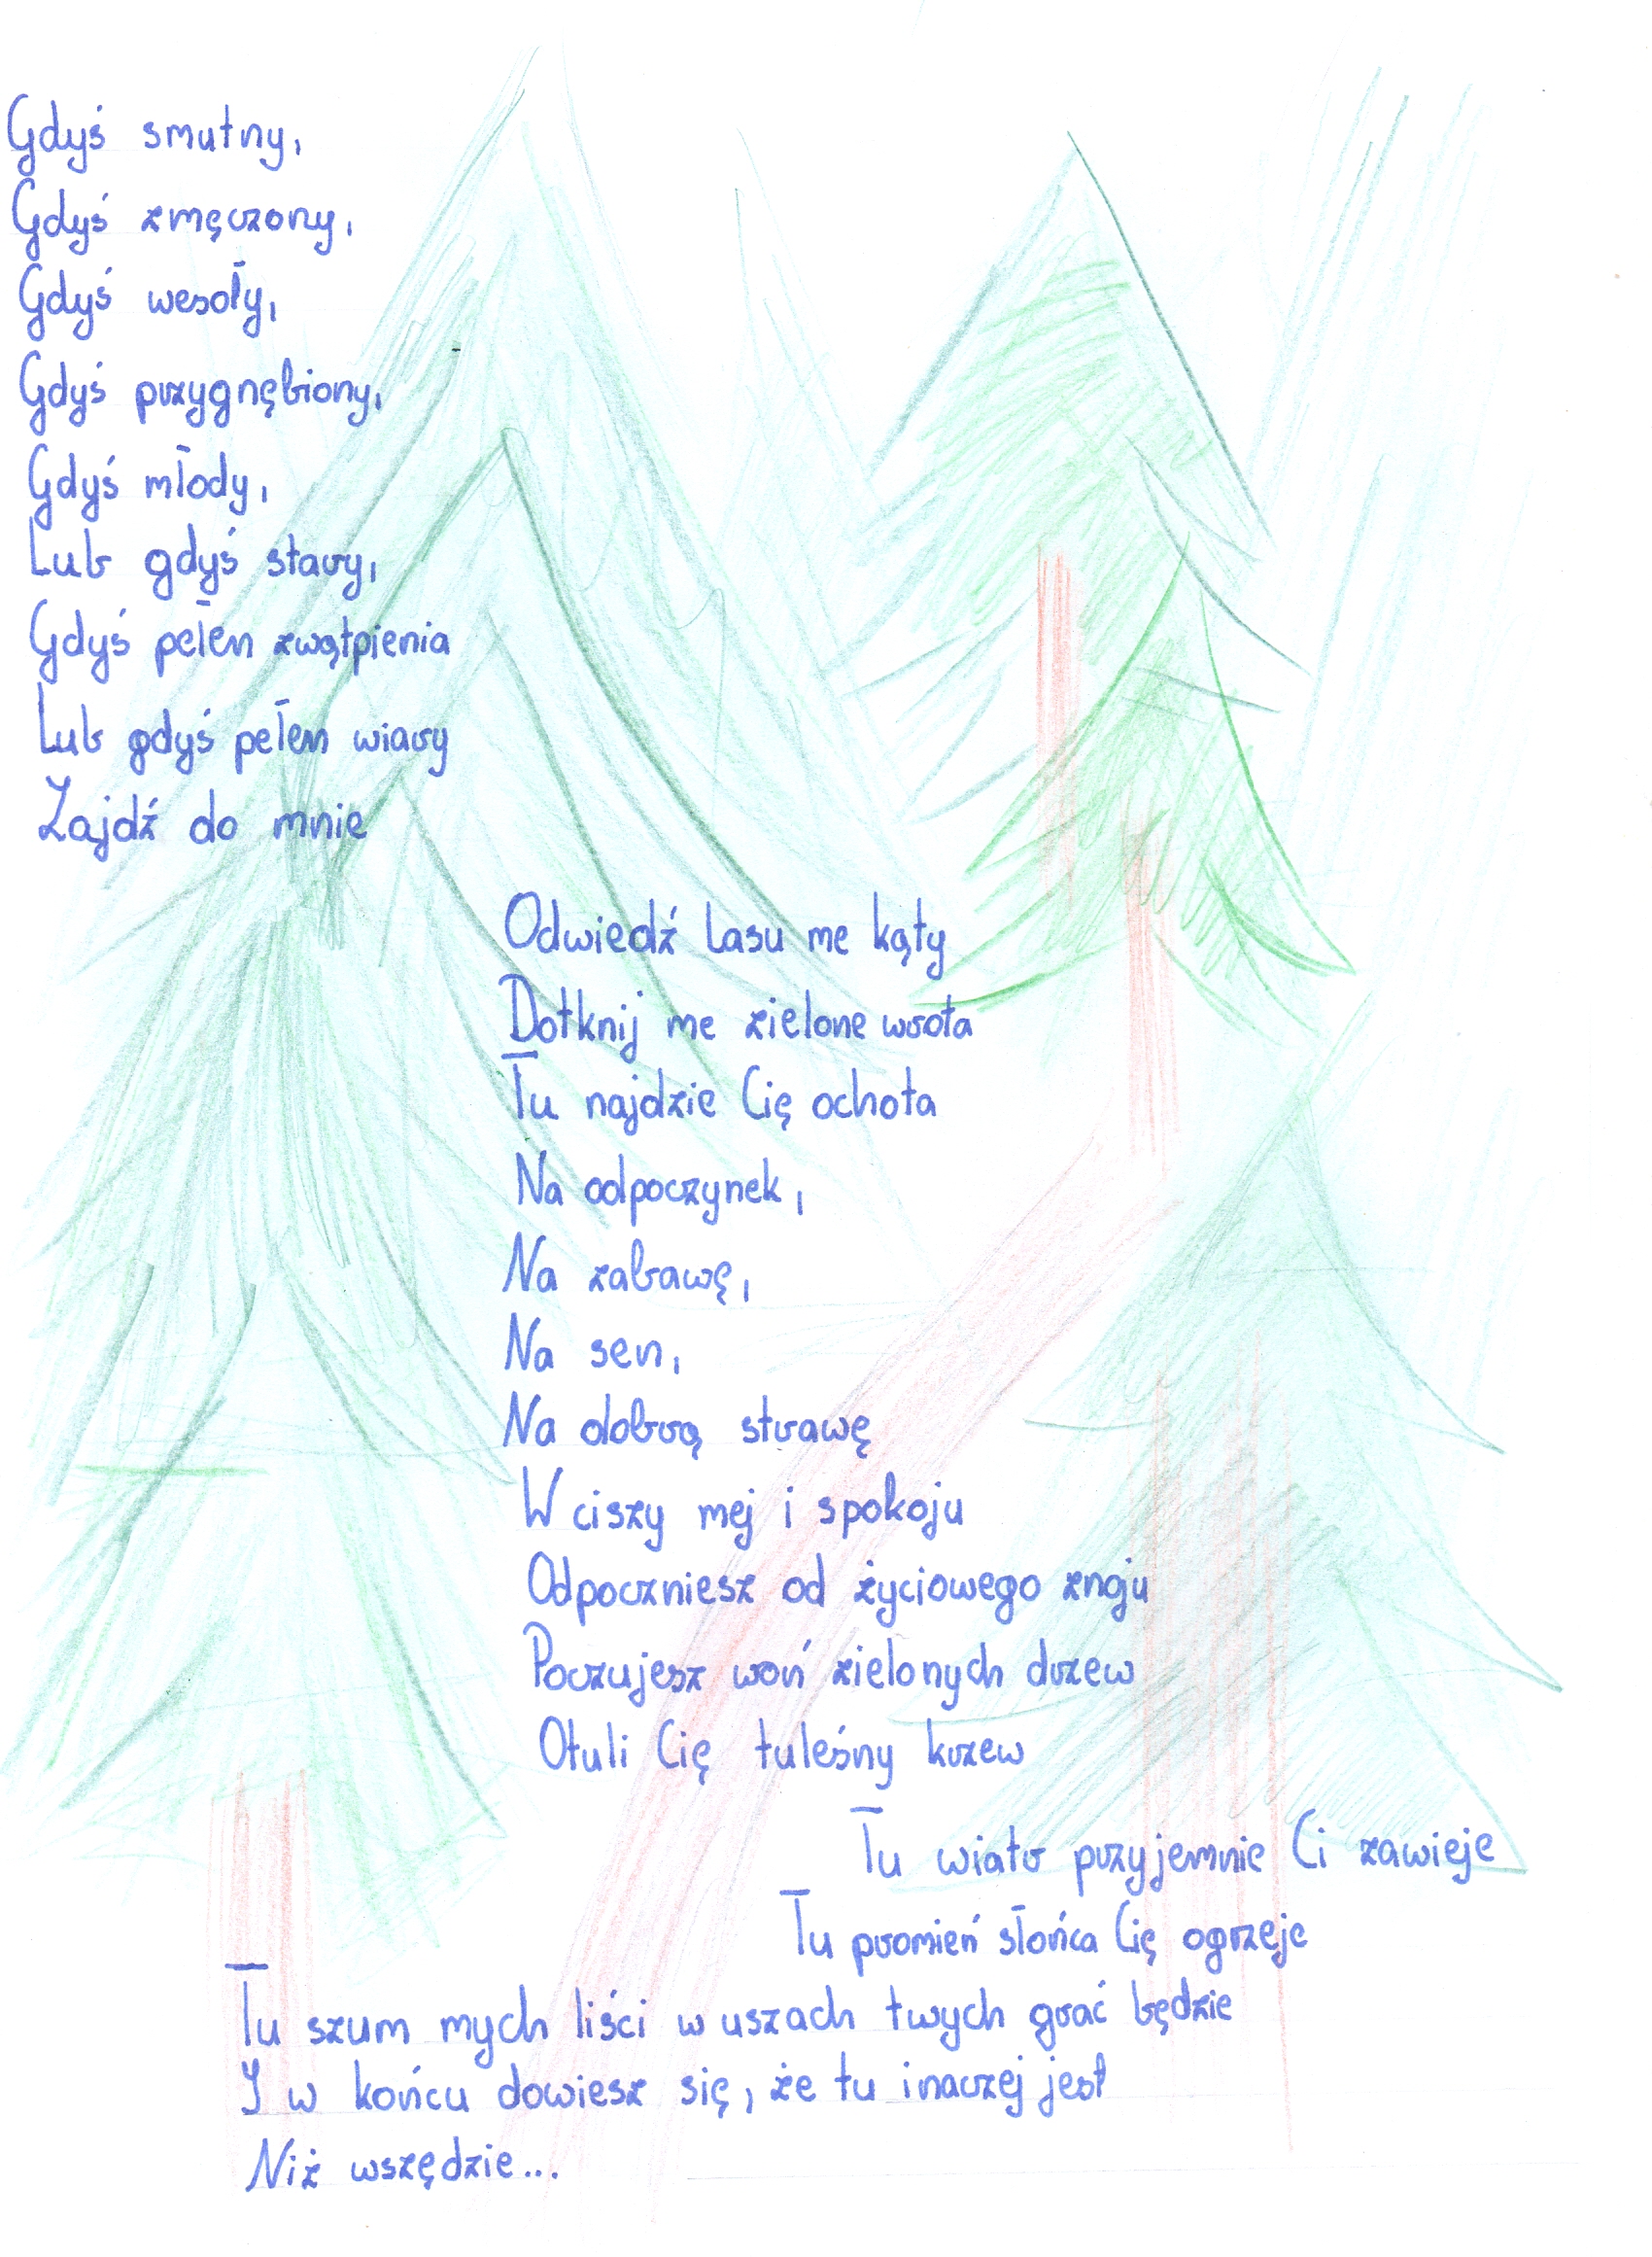 Gdyś smutny,
Gdyś zmęczony,
Gdyś wesoły,
Gdyś przygnębiony,
Gdyś młody,
Lub gdyś stary,
Gdyś pełen zwątpienia
Lub gdyś pełen wiary
Zajdź do mnie
Odwiedź lasu me kąty
Dotknij me zielone wrota
Tu najdzie Cię ochota
Na odpoczynek,
Na zabawę,
Na sen,
Na dobrą strawę
W ciszy mej i spokoju
Odpoczniesz od życiowego znoju
Poczujesz woń zielonych drzew
Otuli Cię tuleśny krzew
Tu wiatr przyjemnie Ci zawieje
Tu promień słońca Cię ogrzeje
Tu szum mych liści w uszach twych grać będzie
I w końcu dowiesz się, że tu inaczej jest
Niż wszędzie...